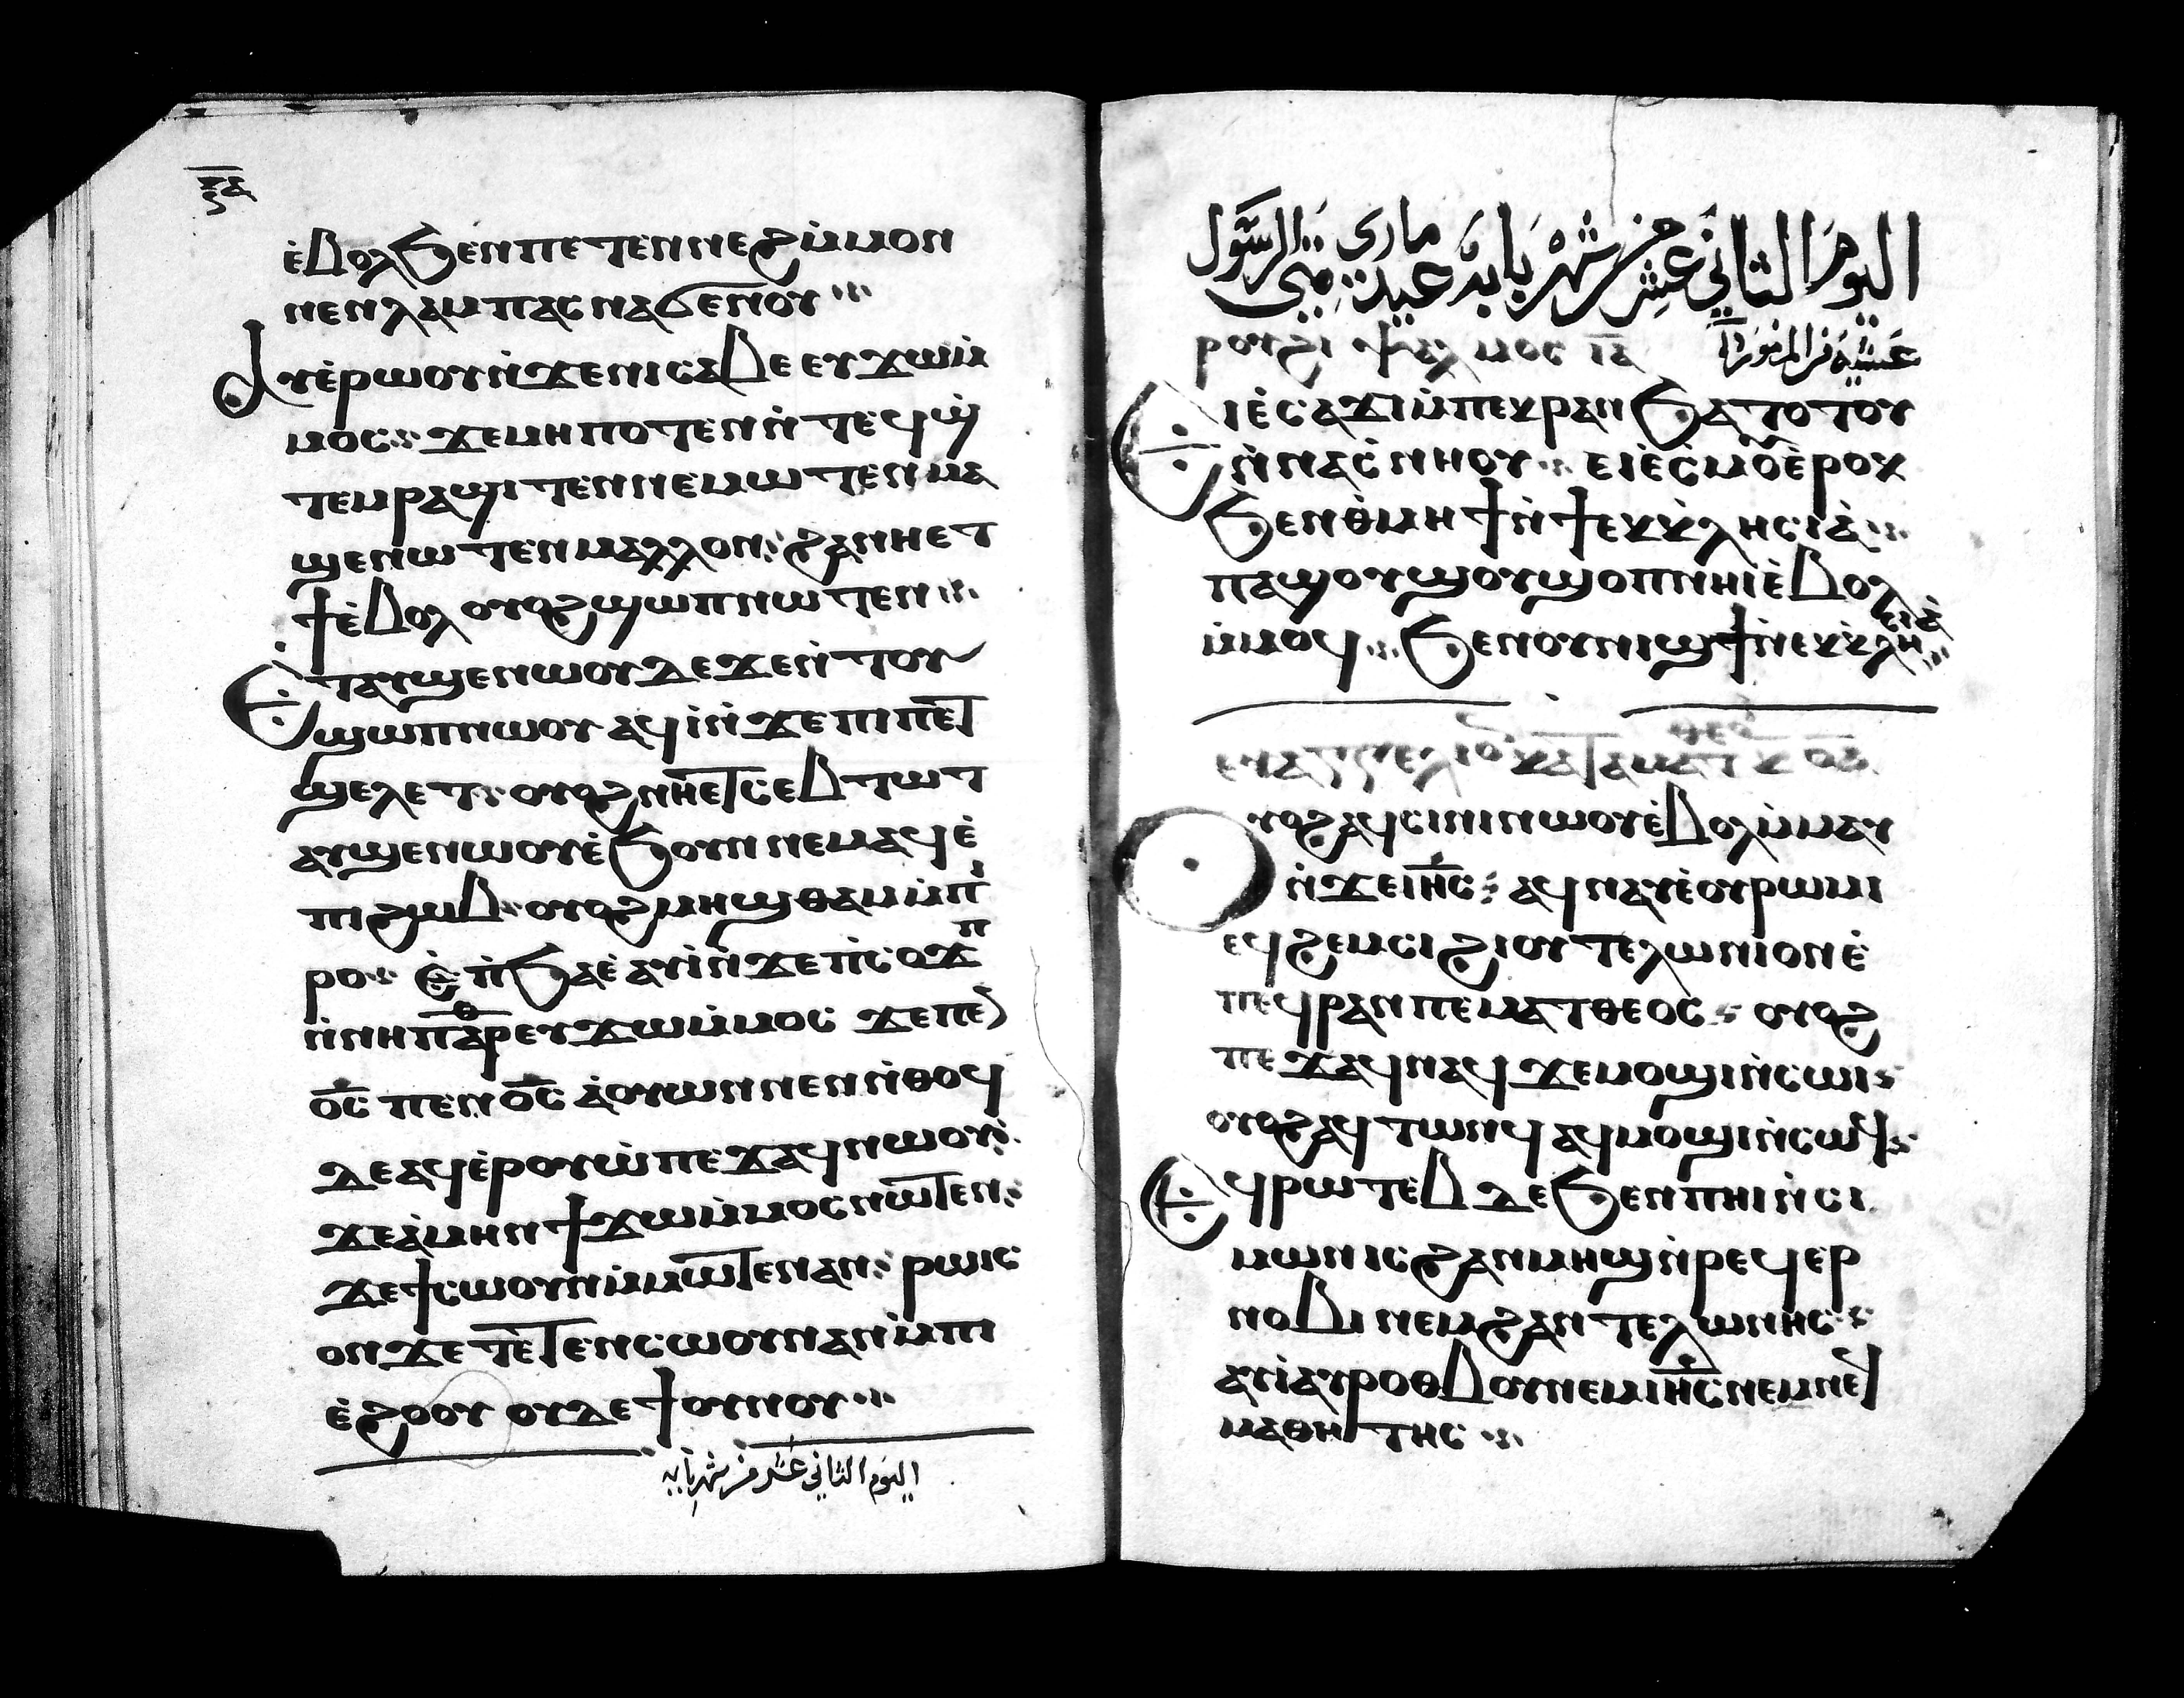 ⲉ̀ⲃⲟⲗϧⲉⲛⲡⲉⲧⲉⲛⲛⲉϩⲙ̀ⲙⲟⲛ
ⲛⲉⲛⲗⲁⲙⲡⲁⲥⲛⲁϭⲉⲛⲟⲩ
ⲁⲩⲉ̀ⲣⲱⲟⲩⲛ̀ϫⲉⲛⲓⲥⲁⲃⲉⲉⲩϫⲱⲙ̀
ⲙⲟⲥ ϫⲉⲙⲏⲡⲟⲧⲉⲛⲛ̀ⲧⲉϥϣ̀
ⲧⲉⲙⲣⲁϣⲓⲧⲉⲛⲛⲉⲙⲱⲧⲉⲛⲙⲁ
ϣⲉⲛⲱⲧⲉⲛⲙⲁⲗⲗⲟⲛ ϩⲁⲛⲏⲉⲧ
ϯⲉ̀ⲃⲟⲗ ⲟⲩⲟϩϣⲱⲡⲛⲱⲧⲉⲛ
Ⲉⲧⲁⲩϣⲉⲛⲱⲟⲩⲇⲉϫⲉⲛ̀ⲧⲟⲩ
ϣⲱⲡⲛⲱⲟⲩ ⲁϥⲓ̀ⲛ̀ϫⲉⲡⲓⲡⲉⲧ
ϣⲉⲗⲉⲧ ⲟⲩⲟϩⲛⲏⲉⲧⲥⲉⲃⲧⲱⲧ
ⲁⲩϣⲉⲛⲱⲟⲩⲉ̀ϧⲟⲩⲛⲛⲉⲙⲁϥⲉ̀
ⲡⲓϩⲱⲃ ⲟⲩⲟϩⲙⲏϣⲑⲁⲙⲙ̀ⲡ̀
ⲣⲟ ⲉ̀ⲡ̀ϧⲁⲉ̀ ⲁⲩⲓ̀ⲛ̀ϫⲉⲡ̀ⲥⲟϫⲡ
ⲛ̀ⲛⲏⲡⲁⲣⲑⲉⲩϫⲱⲙ̀ⲙⲟⲥ ϫⲉⲡⲉ
ⲟ̅ⲥ̅ ⲡⲉⲛⲟ̅ⲥ̅ ⲁ̀ⲟⲩⲱⲛⲛⲉⲛⲛ̀ⲑⲟϥ
ⲇⲉⲁϥⲉ̀ⲣⲟⲩⲱ̀ⲡⲉϫⲁϥⲛⲱⲟⲩ
ϫⲉⲁ̀ⲙⲏⲛϯϫⲱⲙ̀ⲙⲟⲥⲛⲱⲧⲉⲛ
ϫⲉϯⲥⲱⲟⲩⲛⲙ̀ⲙⲱⲧⲉⲛⲁⲛ ⲣⲱⲓⲥ
ⲟⲛϫⲉⲧⲉⲧⲉⲛⲥⲱⲟⲩⲛⲁⲛⲙ̀ⲡⲓ
ⲉ̀ϩⲟⲟⲩ ⲟⲩⲇⲉϯⲟⲩⲛⲟⲩ
اليوم الثاني عشر من شهر بابه
اليوم الثاني عشر من شهر بابه عيد ماري متى الرسول
عشية من المزمور
ⲣⲟⲩϩⲓ ⲯⲁⲗⲙⲟⲥ ⲕ̅ⲁ̅
Ⲉⲓⲉ̀ⲥⲁϫⲓⲙ̀ⲡⲉⲕⲣⲁⲛϧⲁⲧⲟⲧⲟⲩ
ⲛ̀ⲛⲁⲥ̀ⲛⲏⲟⲩ ⲉⲓⲉ̀ⲥ̀ⲙⲟⲩⲉ̀ⲣⲟⲕ
ϧⲉⲛⲑ̀ⲙⲏϯⲛ̀ϯⲉⲕⲕ̀ⲗⲏⲥⲓⲁ̀
ⲡⲁϣⲟⲩϣⲟⲩϣⲟⲡⲛⲏⲓⲉ̀ⲃⲟⲗ
ⲙ̀ⲙⲟϥ ϧⲉⲛⲟⲩⲛⲓϣϯⲛ̀ⲉⲕⲕ̀ⲗⲏⲥⲓⲁ̀
ⲉⲩⲁⲅⲅⲉⲗⲓⲟ ⲕⲁⲧⲁⲙⲁⲧⲑⲉⲟ
Ⲟⲩⲟϩⲁϥⲥⲓⲛⲓⲛⲱⲟⲩⲉ̀ⲃⲟⲗⲙ̀ⲙⲁⲩ
ⲛ̀ϫⲉⲓⲏ̅ⲥ̅ ⲁϥⲛⲁⲩⲉ̀ⲟⲩⲣⲱⲙⲓ
ⲉϥϩⲉⲙⲥⲓϩⲓⲟⲩⲧⲉⲗⲱⲛⲓⲟⲛⲉ̀
ⲡⲉϥⲣⲁⲛⲡⲉⲙⲁⲧⲑⲉⲟⲥ ⲟⲩⲟϩ
ⲡⲉϫⲁϥⲛⲁϥ ϫⲉⲙⲟϣⲓⲛ̀ⲥⲱⲓ
ⲟⲩⲟϩⲁϥⲧⲱⲛϥ ⲁϥⲙⲟϣⲓⲛ̀ⲥⲱϥ
Ⲉϥⲣⲱⲧⲉⲃ ⲇⲉϧⲉⲛⲡⲏⲓⲛ̀ⲥⲓ
ⲙⲱⲛⲓⲥϩⲁⲛⲙⲏϣⲛ̀ⲣⲉϥⲉⲣ
ⲛⲟⲃⲓ ⲛⲉⲙϩⲁⲛⲧⲉⲗⲱⲛⲏⲥ
ⲁⲩⲓ̀ⲁⲩⲣⲟⲑⲃⲟⲩⲛⲉⲙⲓⲏ̅ⲥ̅ⲛⲉⲙⲛⲉϥ
ⲙⲁⲑⲏⲧⲏⲥ